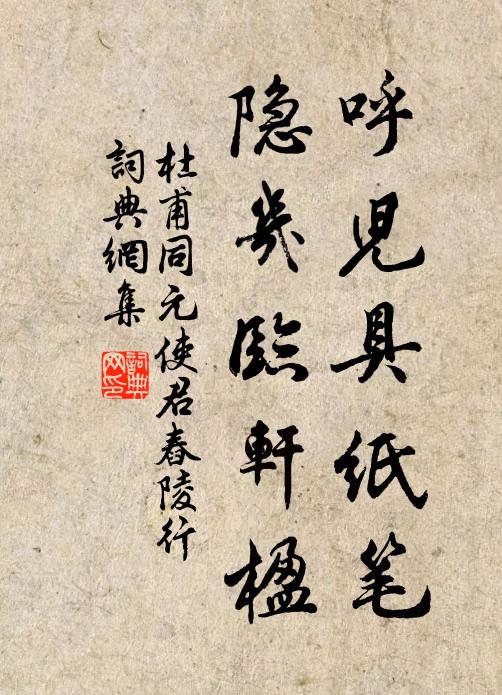 呼児具紙笔
隐幾臨軒楹
杜甫同元使君舂陵行
詞典網集
詞典
网印